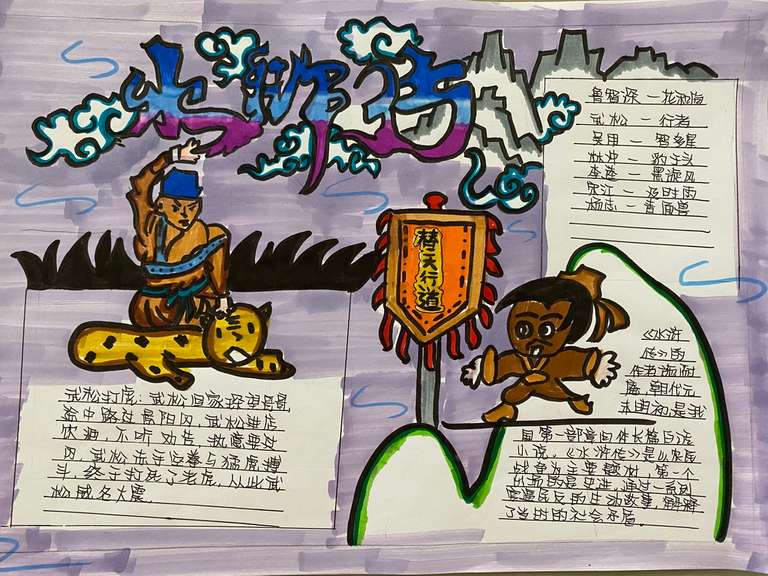 水浒传
鲁智深一花和尚
武松一行者
吴用一智多星
林冲一豹子头
李逵一黑旋风
宋江一及时雨
杨志一青面兽
替天行道
武松打虎：武松回家探望哥哥
途中路过景阳冈，武松进店
饮酒，不听劝告，执意要过
冈，武松赤手空拳与猛虎搏
斗，终于打死了老虎，从此武
松威名大震
《水浒
传》的
作者施耐
庵，朝代元
末明初是我
国第一部章回体长篇白话
小说，《水浒传》是以农民
战争为主要题材，第一个
通过一系列
的生动故事，
了当时的社会矛盾。